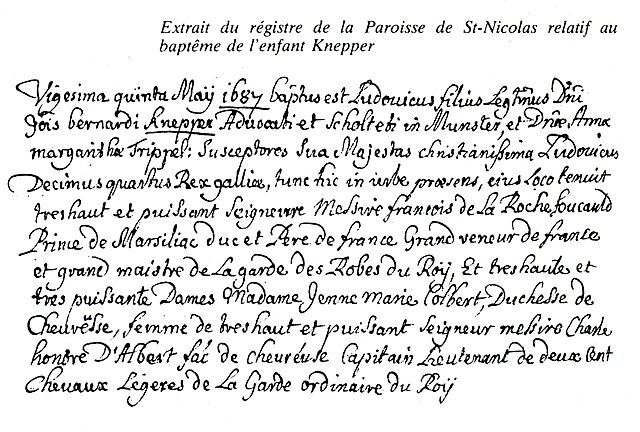 Extrait du régistre de la Paroisse de St-Nicolas relatif au
baptême de l'enfant Knepper
Vigesima quinta Maÿ 1687 baptus est Ludovicus filius Legtmus Dni
Jois bernardi Knepper Advocati et Scholteti in Munster, et Dnae Annae
margarithae Trippel: Susceptores Sua Majestas christianissima Ludovicus
Decimus quartus Rex galliae, tunc hic in urbe praesens, eius Loco tenuit
treshaut et puissant Seigneurre Messire francois de La Rochefoucauld
Prince de Marsiliac duc et Pere de france Grand veneur de france
et grand maistre de La garde des Robes du Roÿ, Et treshaute et
tres puissante Dames Madame Jenne Marie Colbert, Duchesse de
Cheuresse, femme de treshaut et puissant Seigneur messire Charle
honore D'Albert de cheureuse Capitain Lieutenant de deux Cent
Chevaux Légeres de La Garde ordinaire du Roÿ